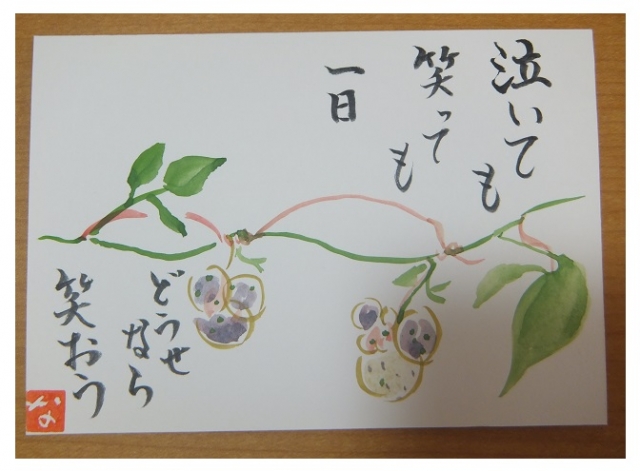 泣いても
笑っても
一日
どうせ
なら
笑おう
な